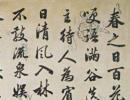 春之日百花
語滿谷
主待人為賓
日清風入林
不流泉娛